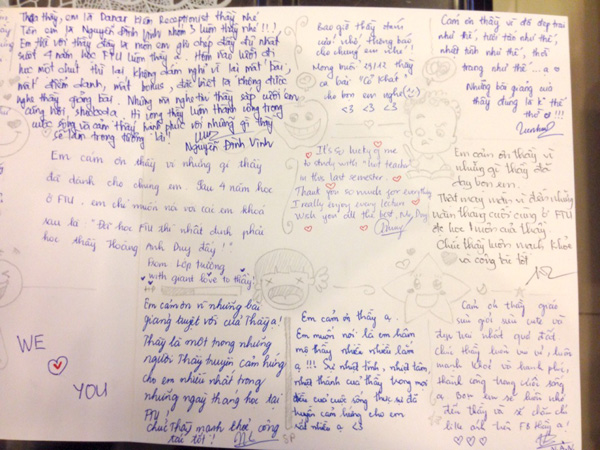 Thưa thầy, em là Dancer kiêm Receptionist thầy nhé
Tên em là Nguyễn Đình Vinh nhóm 3 luôn thầy nhé!!!
Em thề với thầy đây là môn em ghi chép đầy đủ nhất
suốt 4 năm học FTU luôn thầy ạ. Hôm nào
học một chút thì lại không dám nghỉ vì lại mất bài,
mất điểm danh, mất bonus, đặc biệt là không được
nghe thầy giảng bài. Những mà nghe tin thầy sắp cưới em
cũng hơi shock. Hi vọng thầy luôn thành công trong
cuộc sống và cảm thấy hạnh phúc với những gì thầy
sẽ làm trong tương lai!
Nguyễn Đình Vinh
Bao giờ thầy đám
cưới nhớ thông báo
cho chúng em nhé!
Mong muốn 29/12 thầy
ca bài "Cô khát"
cho bọn em nghe
<3 <3 <3
Cảm ơn thầy vì đã đẹp trai
như thế, tươi tắn như thế,
nhiệt tình như thế, thời
trang như thế... ạ
Những bài giảng của
thầy đúng là k thể
thế ạ!!!
Em cảm ơn thầy vì những gì thầy
đã dành cho chúng em. Sau 4 năm học
ở FTU, em chỉ muốn nói với các em khoá
sau là "Đời học FTU thì nhất định phải
học thầy Hoàng Anh Duy đấy!"
Đom Lớp trưởng
with giant love to thầy!
It's so lucky of me
to study with "hot teacher"
in this last semester.
Thank you so much for everything
I really enjoy every lecture
Wish you all the best, Mr. Duy
Em cảm ơn thầy vì
những gì thầy đã
dạy bọn em.
Thật may mắn vì đến những
năm tháng cuối cùng ở FTU
để học 1 môn của thầy
Chúc thầy luôn mạnh khoẻ
và công tác tốt
WE
YOU
Em cảm ơn vì những bài
giảng tuyệt vời của Thầy ạ!
Thầy là một trong những
người Thầy truyền cảm hứng
cho em nhiều nhất trong
những ngày tháng học tại
FTU!
Chúc Thầy mạnh khoẻ công
tác tốt!
Em cảm ơn thầy ạ.
Em muốn nói là em hâm
mộ thầy nhiều nhiều lắm
ạ!!! Sự nhiệt tình, nhiệt tâm,
nhiệt thành của thầy trong mọi
điều của cuộc sống thực sự đã
truyền cảm hứng cho em
rất nhiều ạ <3
SP
Cảm ơn thầy giáo
siêu giỏi siêu cute và
đẹp trai nhất quả đất
Chúc thầy luôn vui vẻ, luôn
mạnh khoẻ và hạnh phúc,
thành công trong cuộc sống
ạ. Bọn em sẽ luôn nhớ
đến thầy và sẽ chăm chỉ
like ảnh trên FB thầy ạ!